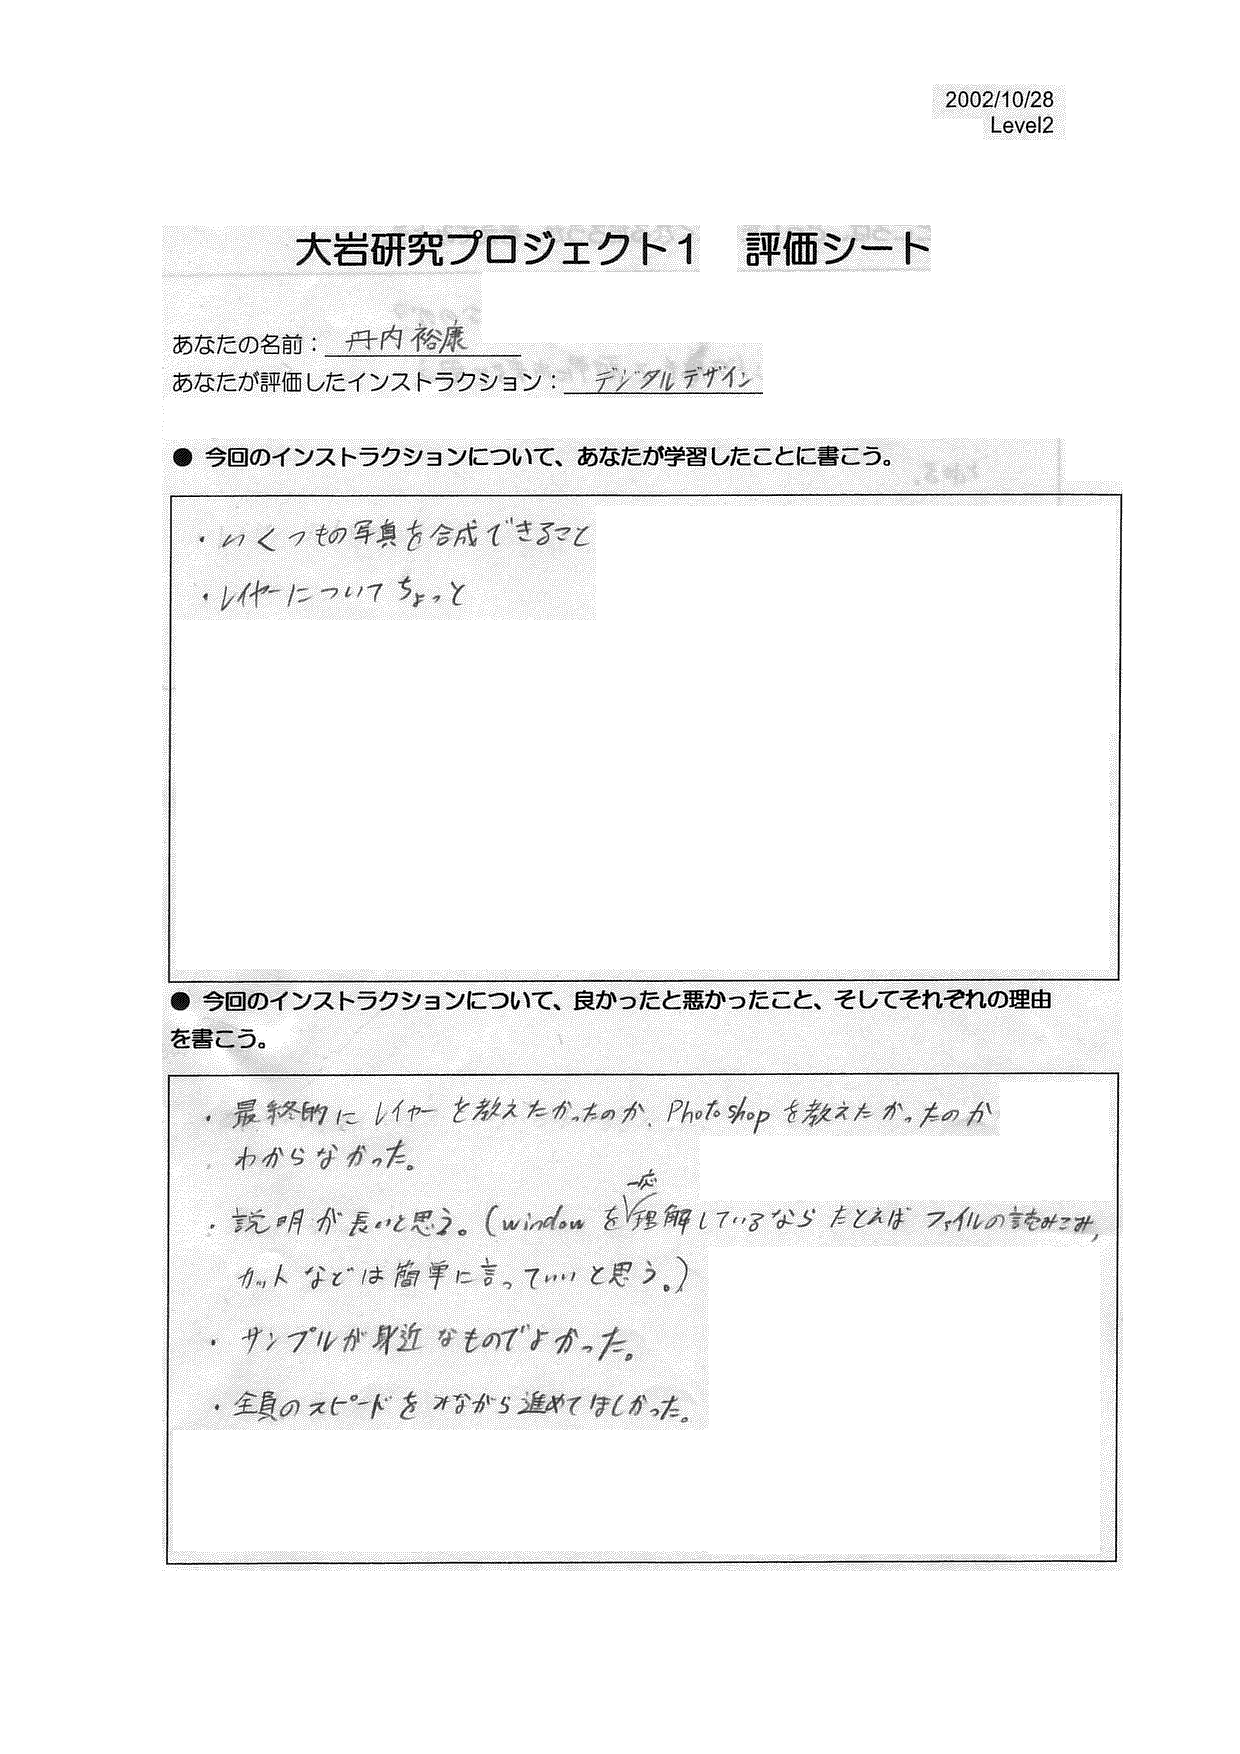 2002/10/28
Level2
大岩研究プロジェクト１　評価シート
あなたの名前：丹内裕康
あなたが評価したインストラクション：デジタルデザイン
● 今回のインストラクションについて、あなたが学習したことに書こう。
・いくつもの写真を合成できること
・レイヤーについてちょっと
● 今回のインストラクションについて、良かったと悪かったこと、そしてそれぞれの理由
を書こう。
・最終的にレイヤーを教えたかったのか、Photoshopを教えたかったのか
わからなかった。
一応
・説明が長いと思う。(windowを理解しているならたとえばファイルの読みこみ,
カットなどは簡単に言っていいと思う。)
・サンプルが身近なものでよかった。
・全員のスピードをみながら進めてほしかった。